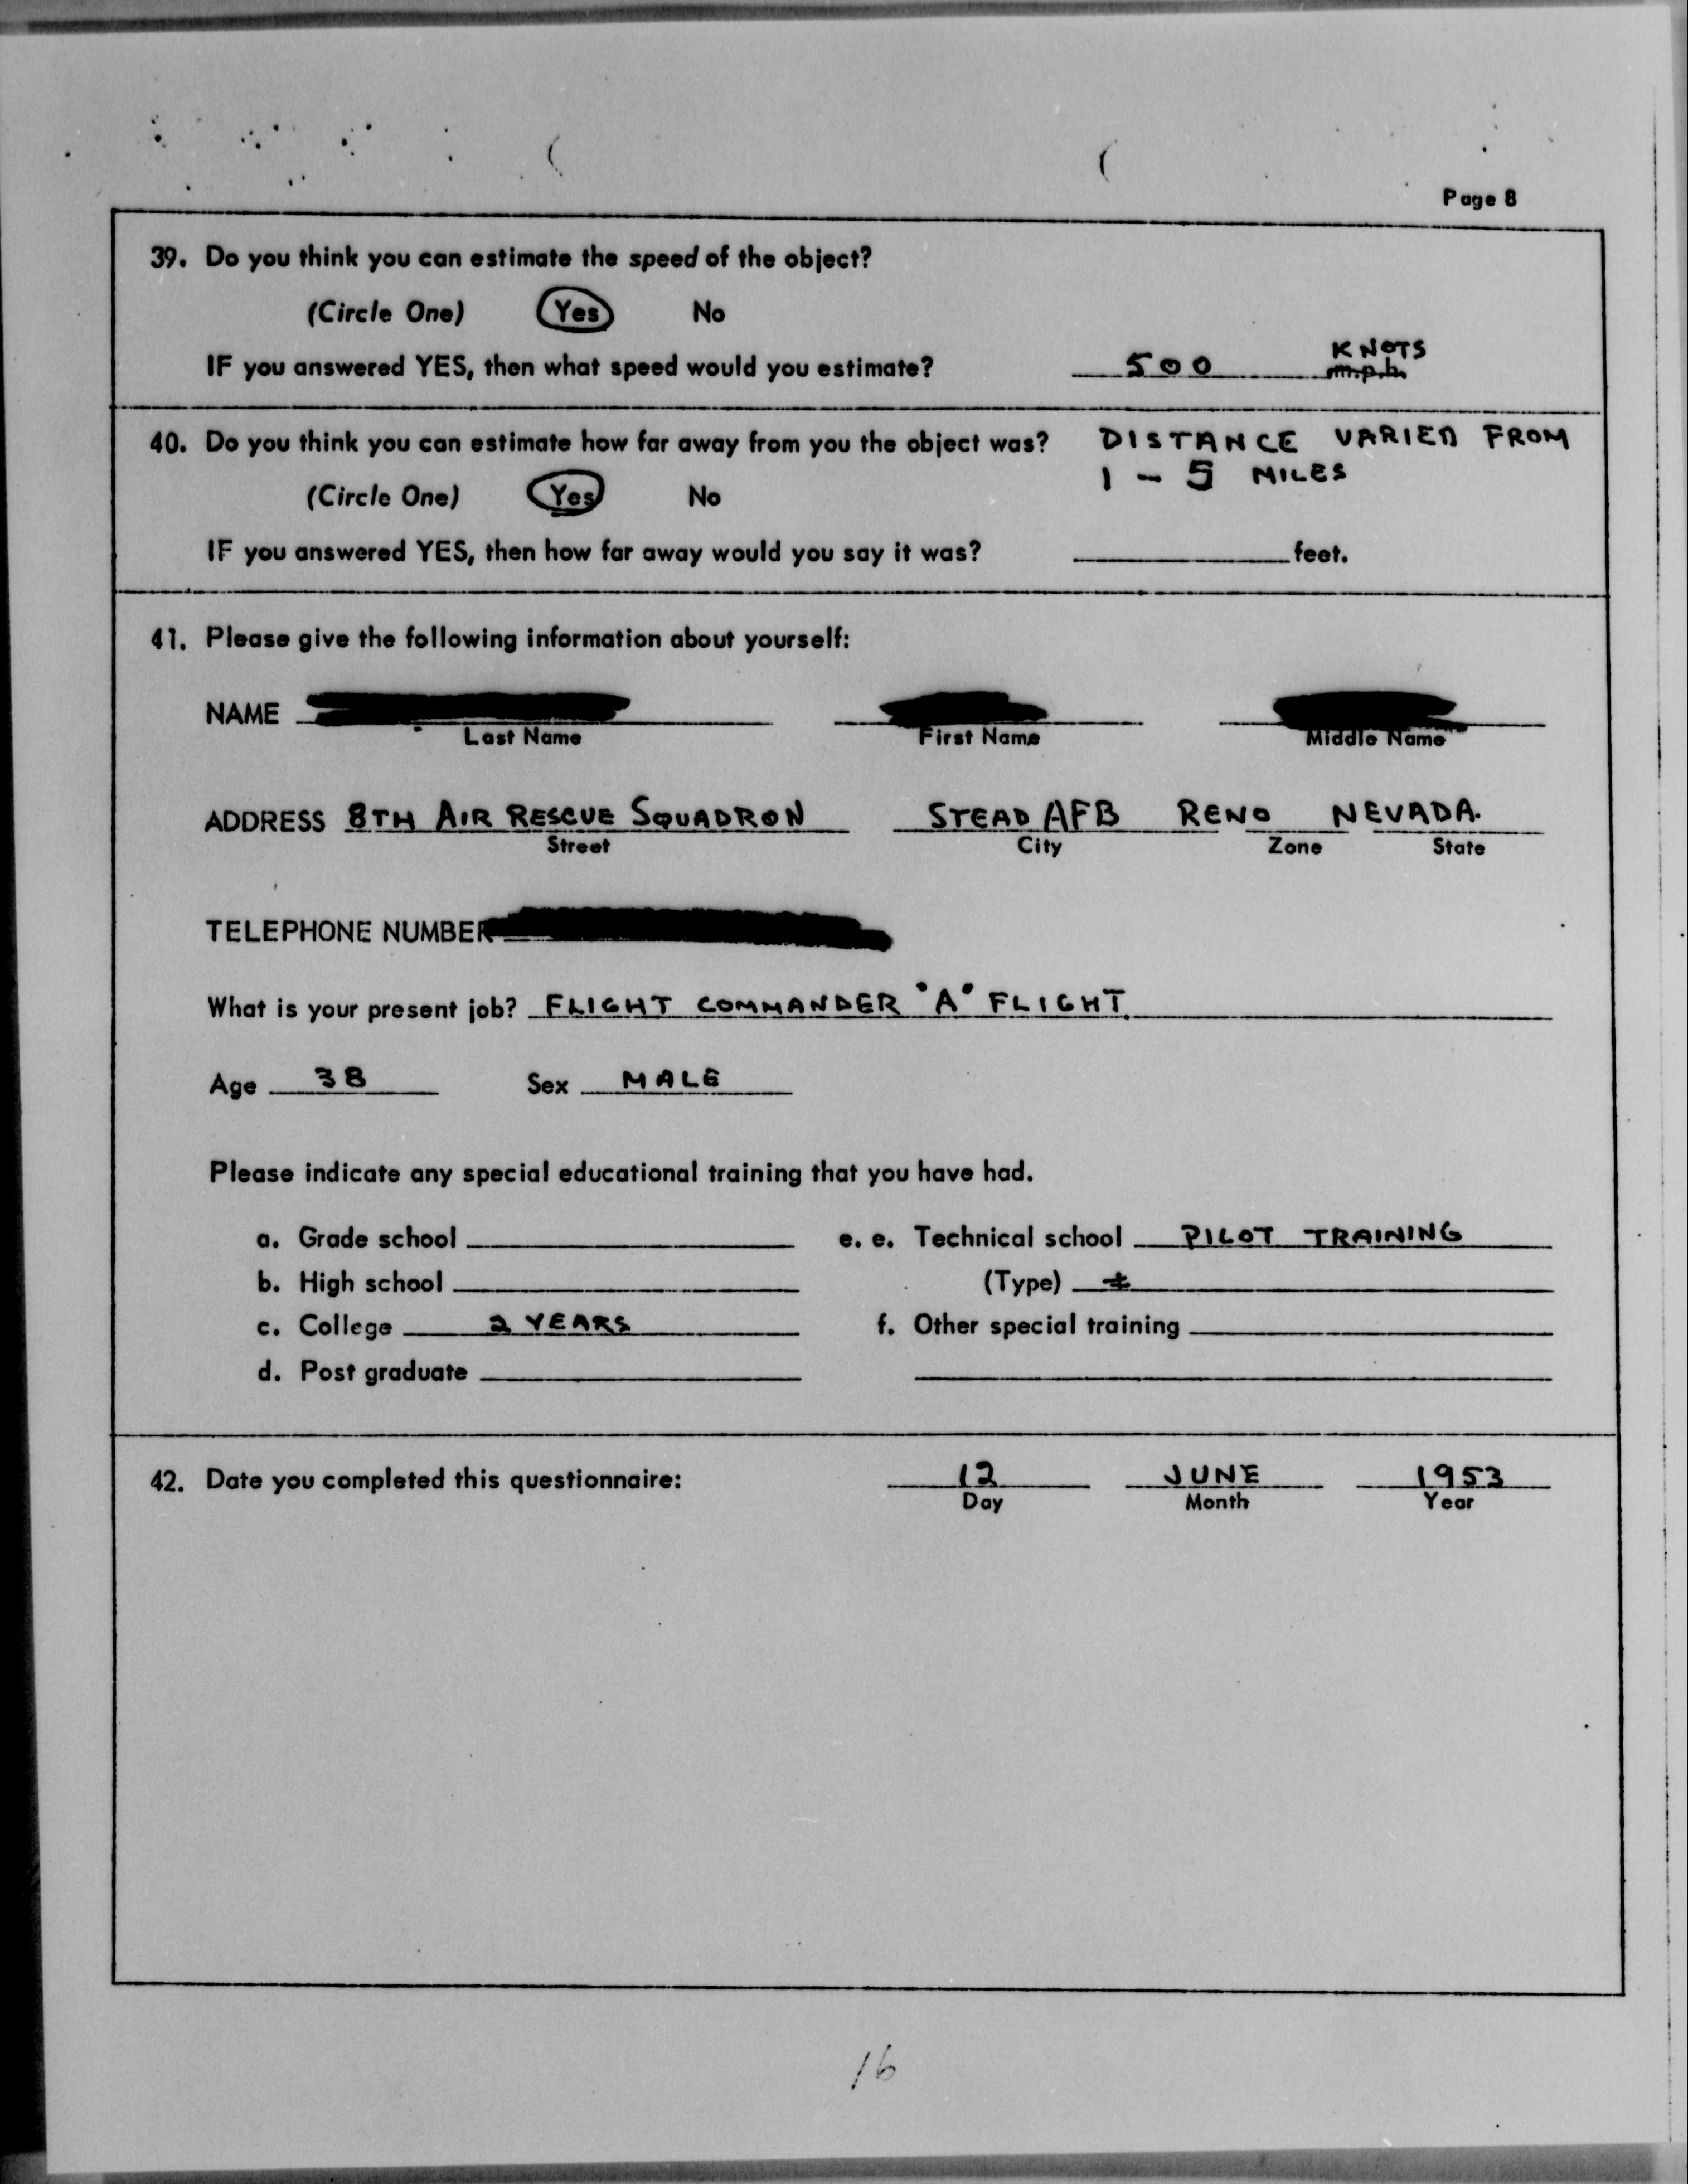 Page 8
39. Do you think you can estimate the speed of the object?
(Circle One) Yes No
KNOTS
IF you answered YES, then what speed would you estimate? 500 m.p.h.
40. Do you think you can estimate how far away from you the object was? DISTANCE VARIED FROM
1 - 5 MILES
(Circle One) Yes No
IF you answered YES, then how far away would you say it was? feet.
41. Please give the following information about yourself:
NAME
Last Name First Name Middle Name
ADDRESS 8TH AIR RESCUE SQUADRON STEAD AFB RENO NEVADA.
Street City Zone State
TELEPHONE NUMBER
What is your present job? FLIGHT COMMANDER "A" FLIGHT.
Age 38 Sex MALE
Please indicate any special educational training that you have had.
a. Grade school e. e. Technical school PILOT TRAINING
b. High school (Type)
c. College 2 YEARS f. Other special training
d. Post graduate
42. Date you completed this questionnaire: 12 JUNE 1953
Day Month Year
16